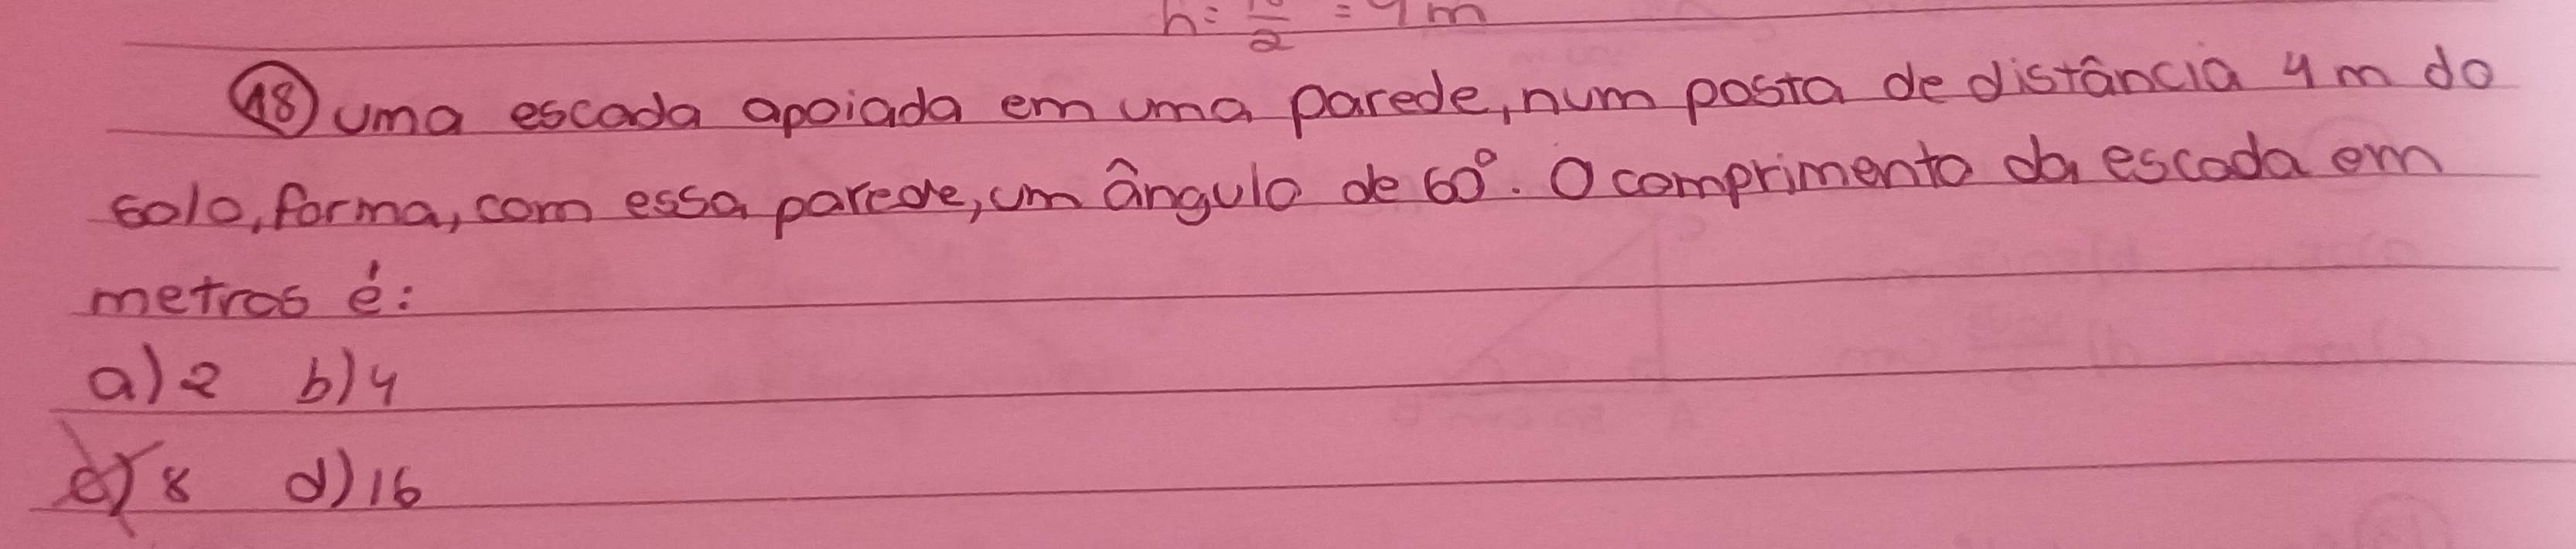 h= /2 = m
18) uma escada apoiada em uma parede, num posta de distância 4m do
solo, forma, com essa parede, um ângulo de 60°. O comprimento da escada em
metros é:
a) 2 b) 4
c) 8 d) 16